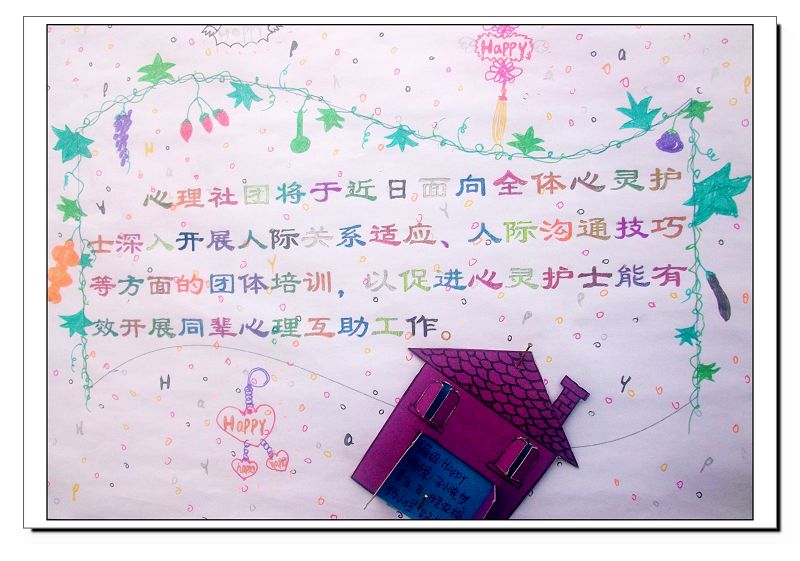 Happy
Happy
心理社团将于近日面向全体心灵护
士深入开展人际关系适应、人际沟通技巧
等方面的团体培训，以促进心灵护士能有
效开展同辈心理互助工作。
Happy
happy
Happy